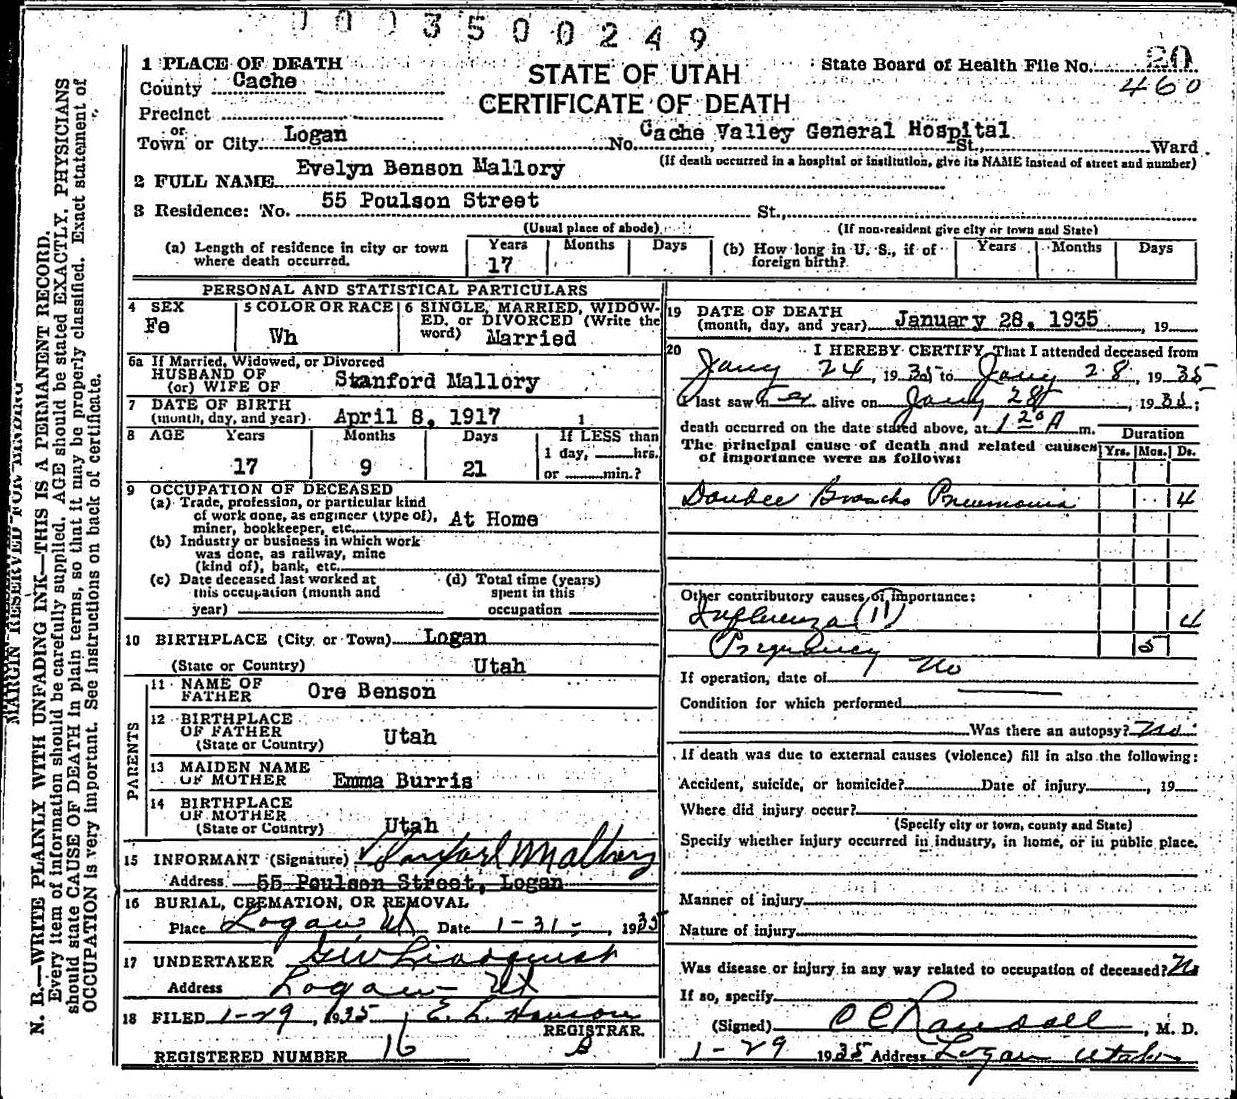 0003500249
20
460
STATE OF UTAH
CERTIFICATE OF DEATH
State Board of Health File No.
1 PLACE OF DEATH
County Cache
Precinct
or
Town or City Logan No. Cache Valley General Hospital St., Ward
(If death occurred in a hospital or institution, give its NAME instead of street and number)
2 FULL NAME Evelyn Benson Mallory
3 Residence: No. 55 Poulson Street St.,
(Usual place of abode) (If non-resident give city or town and State)
(a) Length of residence in city or town where death occurred. Years 17 Months Days
(b) How long in U. S., if of foreign birth? Years Months Days
PERSONAL AND STATISTICAL PARTICULARS
4 SEX Fe
5 COLOR OR RACE Wh
6 SINGLE, MARRIED, WIDOWED, or DIVORCED (Write the word) Married
6a If Married, Widowed, or Divorced
HUSBAND OF
(or) WIFE OF Stanford Mallory
7 DATE OF BIRTH
(month, day, and year) April 8, 1917
8 AGE Years 17 Months 9 Days 21
If LESS than
1 day, hrs.
or min.?
9 OCCUPATION OF DECEASED
(a) Trade, profession, or particular kind
of work done, as engineer (type of),
miner, bookkeeper, etc. At Home
(b) Industry or business in which work
was done, as railway, mine
(kind of), bank, etc.
(c) Date deceased last worked at
this occupation (month and
year)
(d) Total time (years)
spent in this
occupation
10 BIRTHPLACE (City or Town) Logan
(State or Country) Utah
PARENTS
11 NAME OF
FATHER Ore Benson
12 BIRTHPLACE
OF FATHER
(State or Country) Utah
13 MAIDEN NAME
OF MOTHER Emma Burris
14 BIRTHPLACE
OF MOTHER
(State or Country) Utah
15 INFORMANT (Signature) Stanford Mallory
Address 55 Poulson Street, Logan
16 BURIAL, CREMATION, OR REMOVAL
Place Logan, Ut Date 1-31-, 1935
17 UNDERTAKER G W Lindquist
Address Logan Ut
18 FILED 1-29, 1935 E. L. Hanson
REGISTRAR.
REGISTERED NUMBER 16
19 DATE OF DEATH
(month, day, and year) January 28, 1935, 19
20 I HEREBY CERTIFY, That I attended deceased from
Jany 24, 1935 to Jany 28, 1935
I last saw her alive on Jany 28, 1935;
death occurred on the date stated above, at 1 20 A m.
The principal cause of death and related causes
of importance were as follows:
Duration
Yrs. Mos. Ds.
Double Broncho Pneumonia 4
Other contributory causes of importance:
Influenza (11) 4
Pregnancy 5
If operation, date of No
Condition for which performed
Was there an autopsy? No
If death was due to external causes (violence) fill in also the following:
Accident, suicide, or homicide? Date of injury , 19
Where did injury occur?
(Specify city or town, county and State)
Specify whether injury occurred in industry, in home, or in public place.
Manner of injury
Nature of injury
Was disease or injury in any way related to occupation of deceased? No
If so, specify
(Signed) C C Randall, M. D.
1-29 1935 Address Logan Utah
MARGIN RESERVED FOR BINDING
N. B.—WRITE PLAINLY WITH UNFADING INK—THIS IS A PERMANENT RECORD.
Every item of information should be carefully supplied. AGE should be stated EXACTLY. PHYSICIANS
should state CAUSE OF DEATH in plain terms, so that it may be properly classified. Exact statement of
OCCUPATION is very important. See instructions on back of certificate.